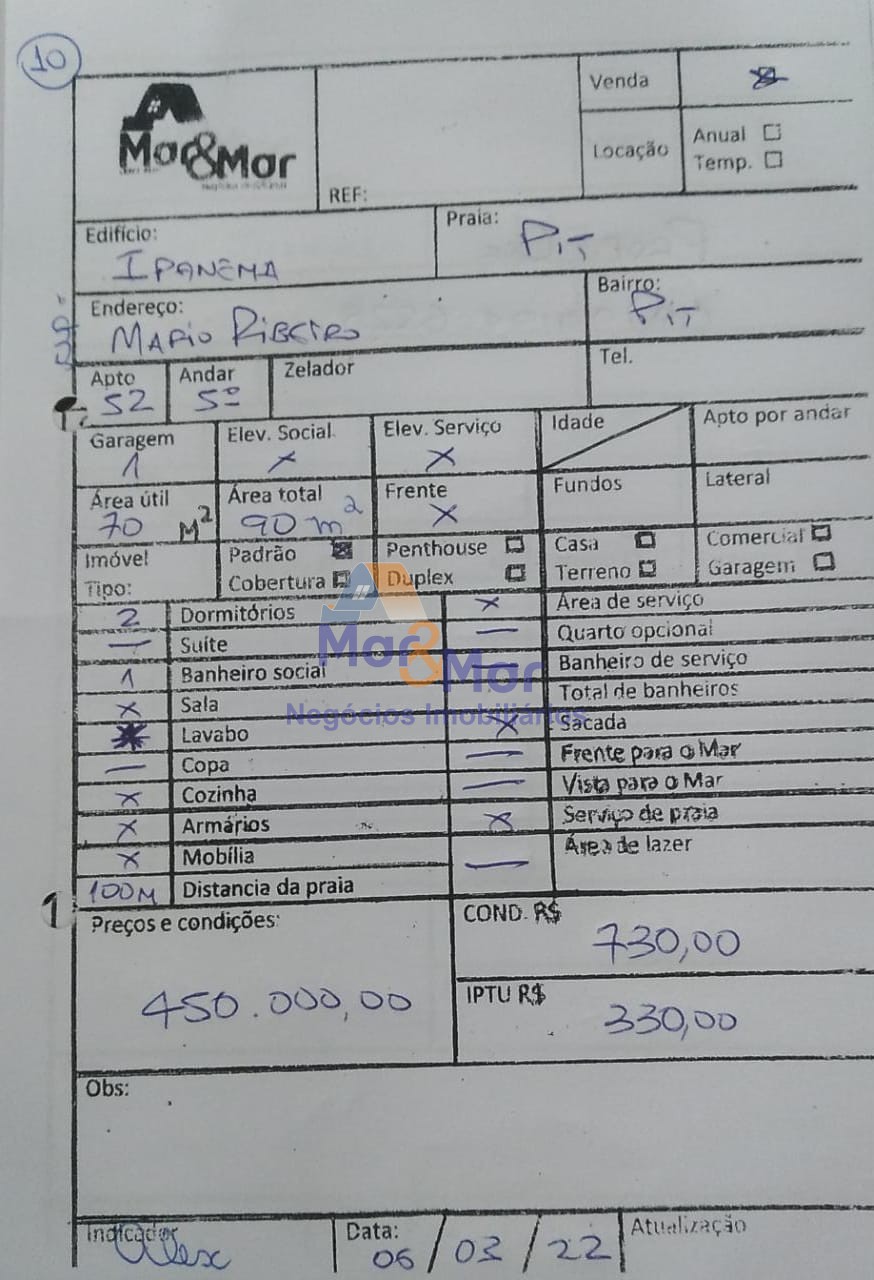 10
Mar&Mar
Venda
Locação
Anual
Temp.
REF:
Edifício: IPANEMA
Praia: PIT
Endereço: MARIO RIBEIRO
Bairro: PIT
Apto 52
Andar 5º
Zelador
Tel.
Garagem 1
Elev. Social X
Elev. Serviço X
Idade
Apto por andar
Área útil 70 M²
Área total 90 m²
Frente X
Fundos
Lateral
Imóvel Tipo:
Padrão
Penthouse
Casa
Comercial
Cobertura
Duplex
Terreno
Garagem
2 Dormitórios
X Área de serviço
— Suíte
— Quarto opcional
1 Banheiro social
— Banheiro de serviço
X Sala
Total de banheiros
Lavabo
X Sacada
— Copa
— Frente para o Mar
X Cozinha
— Vista para o Mar
X Armários
X Serviço de praia
X Mobília
— Área de lazer
100M Distancia da praia
Mar&Mar
Negócios Imobiliários
Preços e condições:
450.000,00
COND. R$
730,00
IPTU R$
330,00
Obs:
Indicador Alex
Data: 06/03/22
Atualização